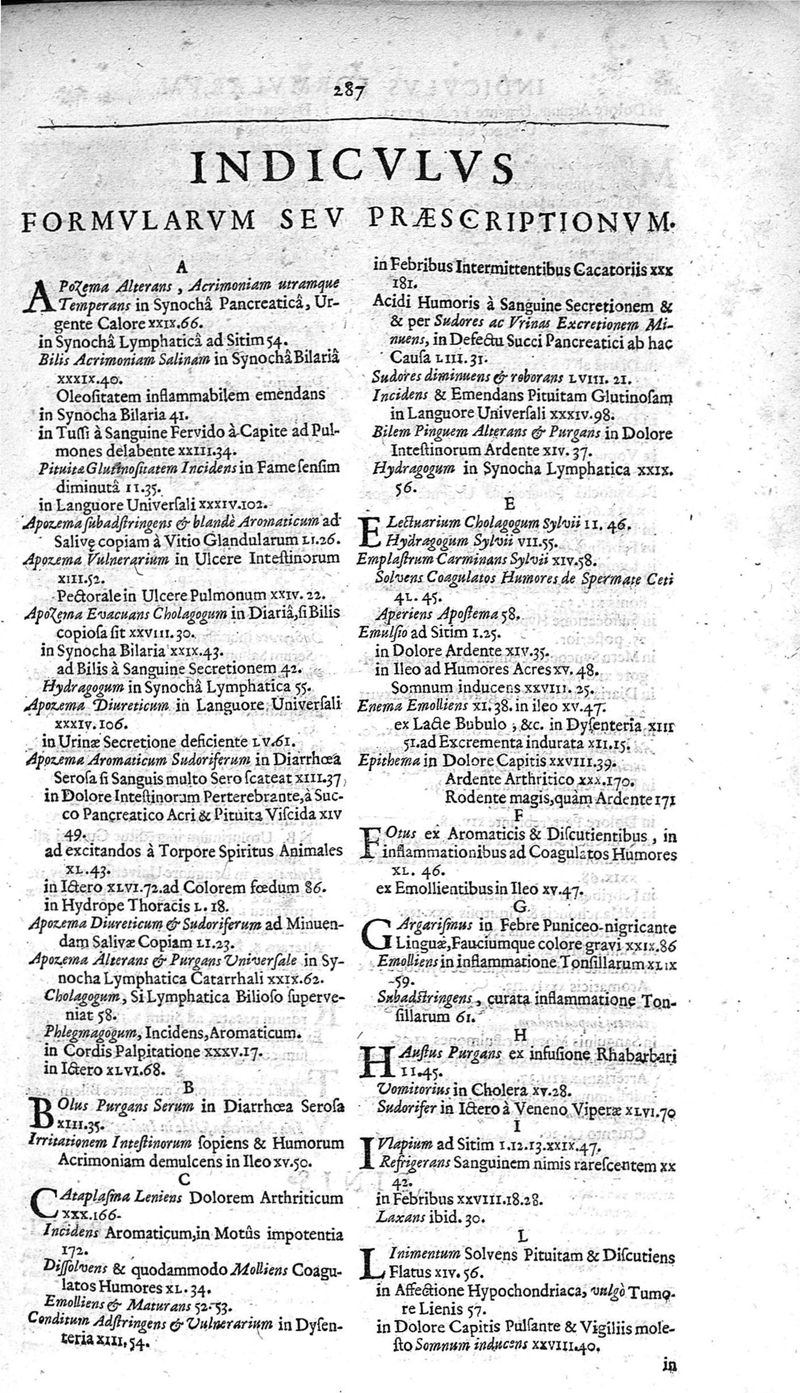 287
INDICVLVS
FORMVLARVM SEV PRÆSCRIPTIONVM.
A
APozema Alterans, Acrimoniam utramque
Temperans in Synochâ Pancreaticâ, Ur-
gente Calore XXIX.66.
in Synochâ Lymphaticâ ad Sitim 54.
Bilis Acrimoniam Salinam in Synochâ Bilariâ
XXXIX.40.
Oleositatem inflammabilem emendans
in Synocha Bilaria 41.
in Tussi à Sanguine Fervido à Capite ad Pul-
mones delabente XXIII.34.
Pituitæ Glutinositatem Incidens in Fame sensim
diminutâ II.35.
in Languore Universali XXXIV.102.
Apozema subadstringens & blandè Aromaticum ad
Salivę copiam à Vitio Glandularum LI.26.
Apozema Vulnerarium in Ulcere Intestinorum
XIII.52.
Pectorale in Ulcere Pulmonum XXIV. 22.
Apozema Evacuans Cholagogum in Diariâ, si Bilis
copiosa sit XXVIII.30.
in Synocha Bilaria XXIX.43.
ad Bilis à Sanguine Secretionem 42.
Hydragogum in Synochâ Lymphatica 55.
Apozema Diureticum in Languore Universali
XXXIV.106.
in Urinæ Secretione deficiente LV.61.
Apozema Aromaticum Sudoriferum in Diarrhœa
Serosa si Sanguis multo Sero scateat XIII.37
in Dolore Intestinorum Perterebrante, à Suc-
co Pancreatico Acri & Pituita Viscida XIV
49.
ad excitandos à Torpore Spiritus Animales
XL.43.
in Ictero XLVI.72.ad Colorem fœdum 86.
in Hydrope Thoracis L.18.
Apozema Diureticum & Sudoriferum ad Minuen-
dam Salivæ Copiam LI.23.
Apozema Alterans & Purgans Universale in Sy-
nocha Lymphatica Catarrhali XXIX.62.
Cholagogum, Si Lymphatica Bilioso superve-
niat 58.
Phlegmagogum, Incidens, Aromaticum.
in Cordis Palpitatione XXXV.17.
in Ictero XLVI.68.
B
BOlus Purgans Serum in Diarrhœa Serosa
XIII.35.
Irritationem Intestinorum sopiens & Humorum
Acrimoniam demulcens in Ileo XV.50.
C
CAtaplasma Leniens Dolorem Arthriticum
XXX.166.
Incidens Aromaticum, in Motûs impotentia
172.
Dissolvens & quodammodo Molliens Coagu-
latos Humores XL.34.
Emolliens & Maturans 52-53.
Conditum Adstringens & Vulnerarium in Dysen-
teria XIII.54.
in Febribus Intermittentibus Cacatoriis XXX
181.
Acidi Humoris à Sanguine Secretionem &
& per Sudores ac Vrinas Excretionem Mi-
nuens, in Defectu Succi Pancreatici ab hac
Causa LIII.31.
Sudores diminuens & roborans LVIII. 21.
Incidens & Emendans Pituitam Glutinosam
in Languore Universali XXXIV.98.
Bilem Pinguem Alterans & Purgans in Dolore
Intestinorum Ardente XIV. 37.
Hydragogum in Synocha Lymphatica XXIX.
56.
E
ELectuarium Cholagogum Sylvii II. 46.
Hydragogum Sylvii VII.55.
Emplastrum Carminans Sylvii XIV.58.
Solvens Coagulatos Humores de Spermate Ceti
4L. 45.
Aperiens Apostema 58.
Emulsio ad Sitim I.25.
in Dolore Ardente XIV.35.
in Ileo ad Humores Acres XV. 48.
Somnum inducens XXVIII. 25.
Enema Emolliens XI.38. in ileo XV.47.
ex Lacte Bubulo, &c. in Dysenteria XIII
51.ad Excrementa indurata XII.15.
Epithema in Dolore Capitis XXVIII.39.
Ardente Arthritico XXX.170.
Rodente magis, quàm Ardente 171
F
FOtus ex Aromaticis & Discutientibus, in
inflammationibus ad Coagulatos Humores
XL. 46.
ex Emollientibus in Ileo XV.47.
G
GArgarismus in Febre Puniceo-nigricante
Linguæ, Fauciumque colore gravi XXIX.86
Emolliens in inflammatione Tonsillarum XLIX
-59.
Subadstringens, curata inflammatione Ton-
sillarum 61.
H
HAustus Purgans ex infusione Rhabarbari
II.45.
Vomitorius in Cholera XV.28.
Sudorifer in Ictero à Veneno Viperæ XLVI.70
I
IVlapium ad Sitim I.12.13.XXIX.47.
Refrigerans Sanguinem nimis rarescentem XX
42.
in Febribus XXVIII.18.28.
Laxans ibid. 30.
L
LInimentum Solvens Pituitam & Discutiens
Flatus XIV. 56.
in Affectione Hypochondriaca, vulgò Tumo-
re Lienis 57.
in Dolore Capitis Pulsante & Vigiliis mole-
sto Somnum inducens XXVIII.40.
in